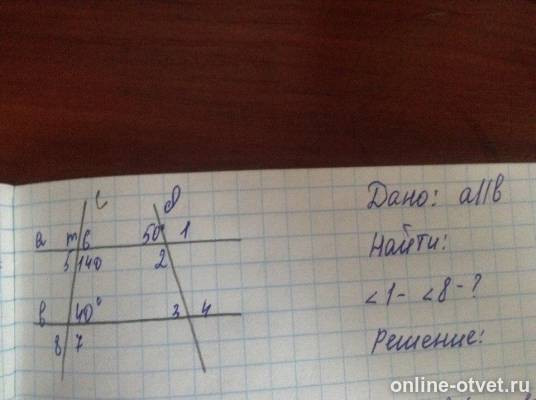 c d
a m 6 50° 1
5 140 2
в 40° 3 4
8 7
Дано: a||в
Найти:
∠1- ∠8-?
Решение:
online-otvet.ru